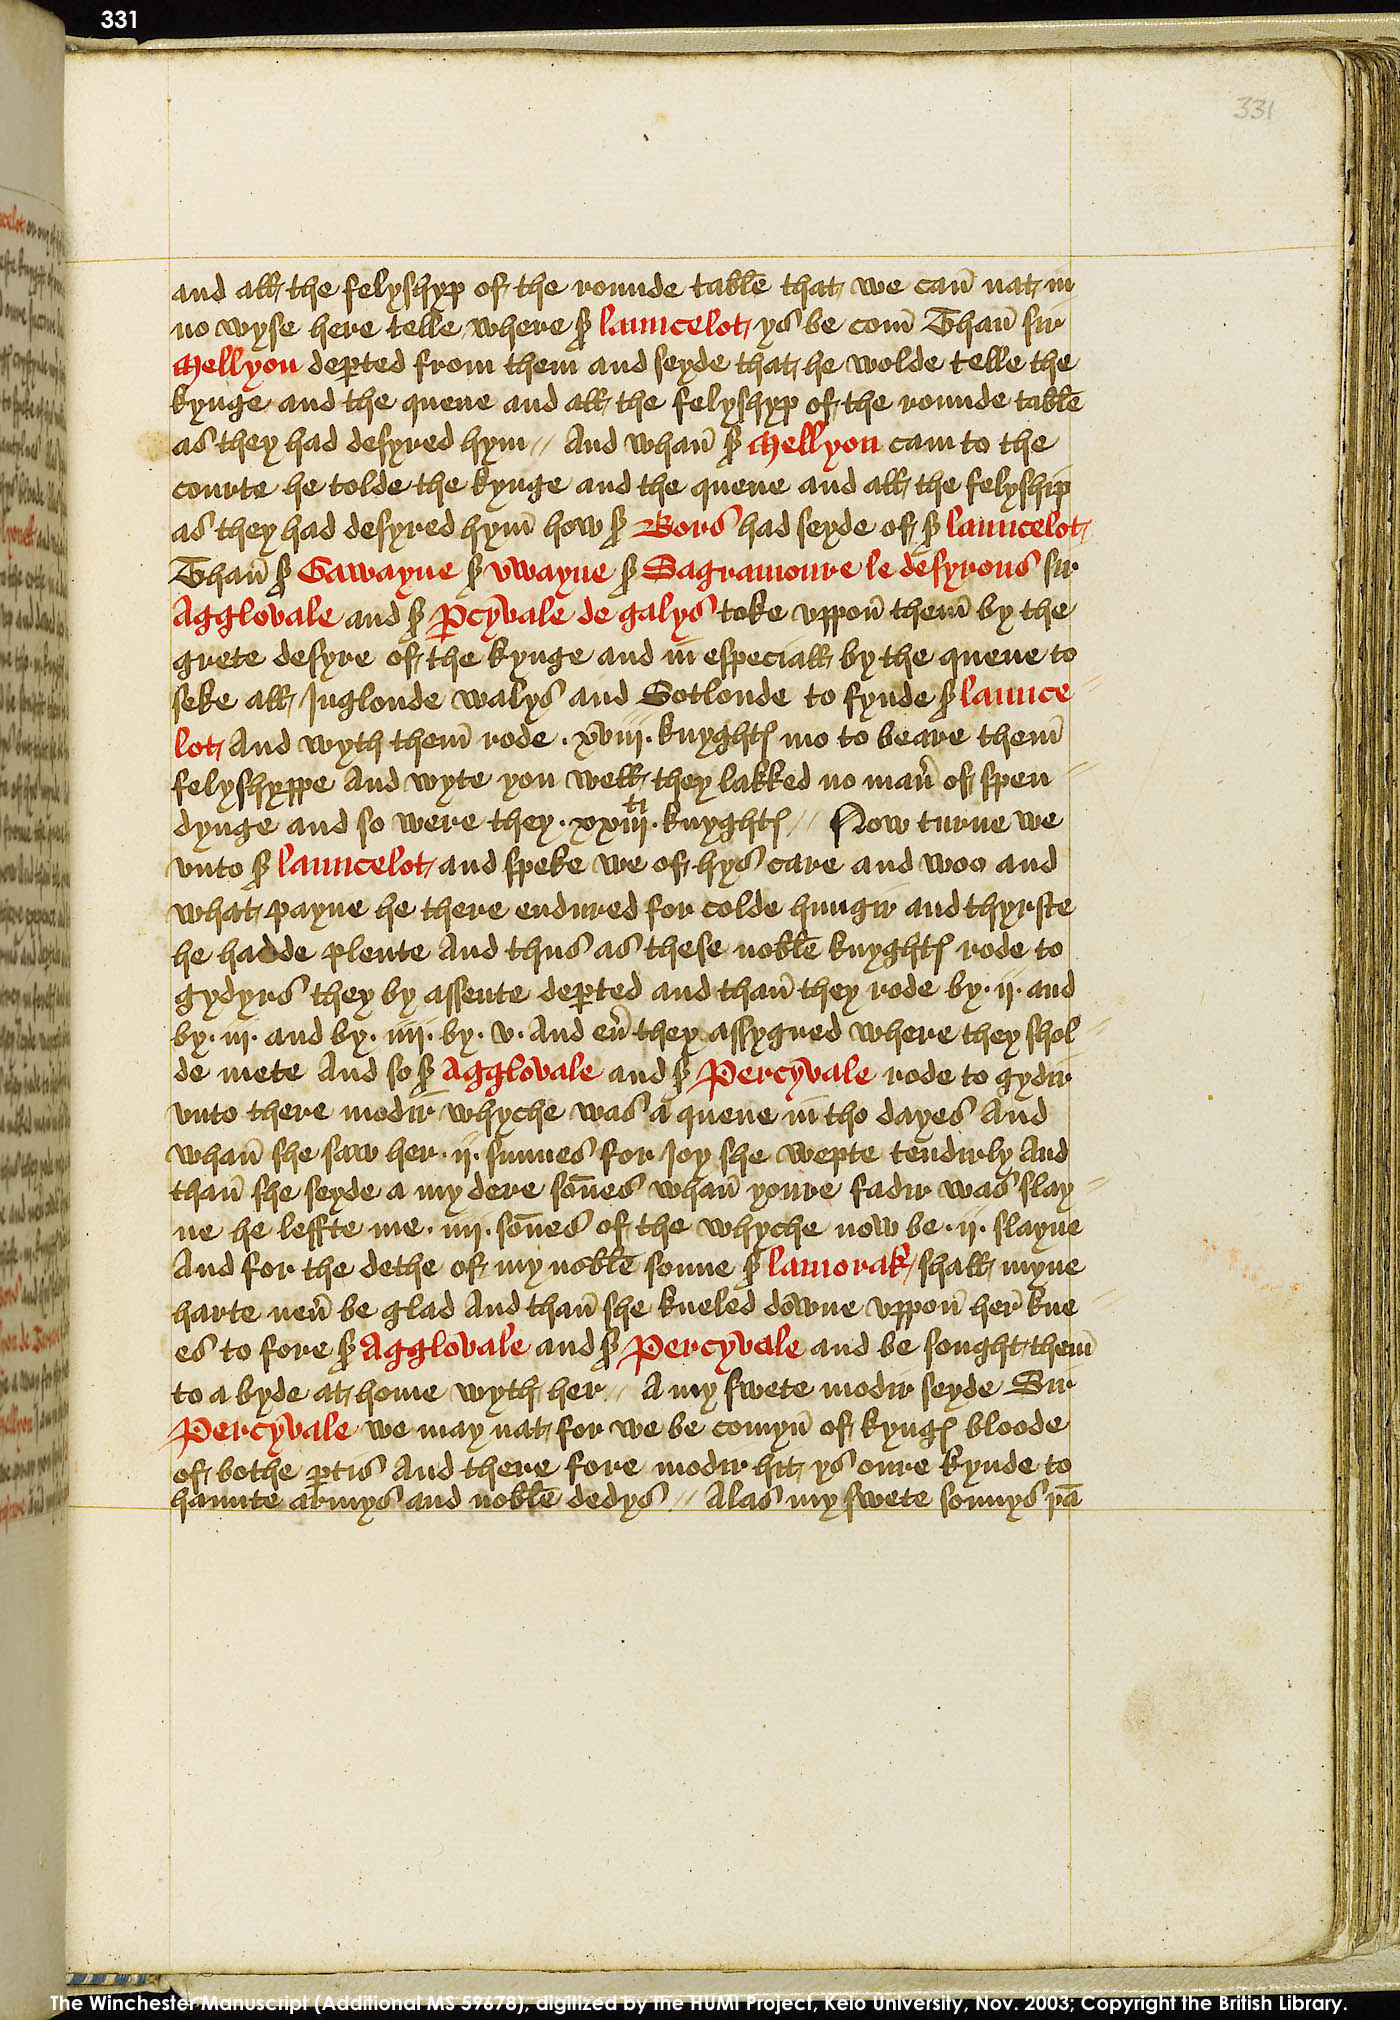 331
331
and all the felyshyp of the rounde table that we can nat in
no wyse here telle where sr launcelot ys be com Than sir
Mellyon depted from them and seyde that he wolde telle the
kynge and the quene and all the felyshyp of the rounde table
as they had desyred hym // And whan sr Mellyon cam to the
courte he tolde the kynge and the quene and all the felyship
as they had desyred hym how sr Bors had seyde of sr launcelot
Than sr Gawayne sr vwayne sr Sagramoure le desyrous sir
Agglovale and sr Pcyvale de galys toke vppon them by the
grete desyre of the kynge and in especiall by the quene to
seke all Inglonde walys and Scotlonde to fynde sr launce
lot And wyth them rode . xviii . knyghtꝭ mo to beare them
felyshyppe And wyte you well they lakked no man of spen
dynge and so were they . xxiiiti . knyghtꝭ // Now turne we
vnto sr launcelot and speke we of hys care and woo and
what payne he there endured for colde hungir and thyrste
he hadde plente And thus as these noble knyghtꝭ rode to
gydyrs they by assente depted and than they rode by . ii . and
by . iii . and by . iiii . by . v . And eu they assygned where they shol
de mete And so sr Agglovale and sr Percyvale rode to gydir
vnto there modir whyche was a quene in tho dayes And
whan she saw her . ii . sunnes for Joy she wepte tendirly And
than she seyde a my dere sones whan youre fadir was slay
ne he leffte me . iiii . sones of the whyche now be . ii . slayne
And for the dethe of my noble sonne sr lamorak shall myne
harte neu be glad And than she kneled downe vppon her kne
es to fore sr Agglovale and sr Percyvale and be sought them
to a byde at home wyth her // A my swete modir seyde Sir
Percyvale we may nat for we be comyn of kyngꝭ bloode
of bothe ptis And there fore modir hit ys oure kynde to
haunte armys and noble dedys // Alas my swete sonnys pa
The Winchester Manuscript (Additional MS 59678), digitized by the HUMI Project, Keio University, Nov. 2003; Copyright the British Library.